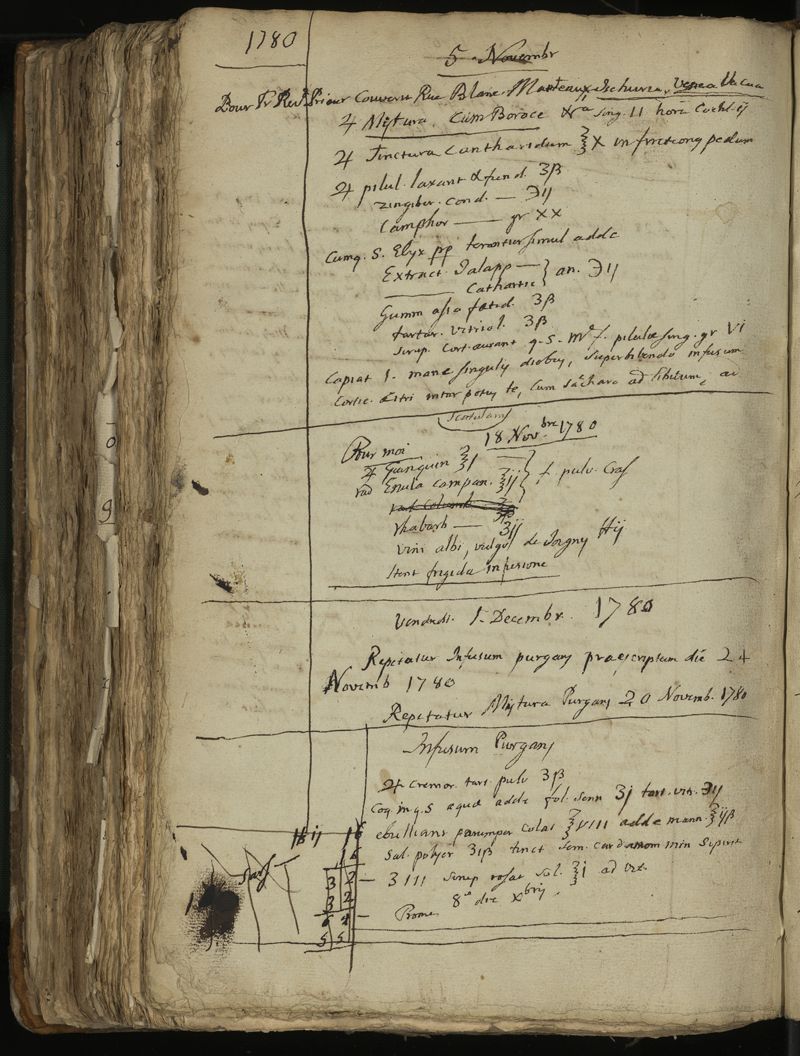 1780
5 Novembr
Pour Fr Rev. Prieur Couvent Rue Blanc Manteaux Ischuria, Vesica Vacua
♃ Mixtura Cum Borace sing. 11 hor. Cochl ij
♃ Tinctura Cantharidum ℥ X in friction pedum
♃ pilul. laxant & fund. ʒβ
zingiber. Cond. — ℈ij
Camphor — gr XX
Cumq. S. Elyx pp terantur simul adde
Extract. Jalapp — } an. ℈ij
—— Cathartic
Gumm assa fœtid. ʒβ
tartar. vitriol. ʒβ
sirup. Cort. aurant q. S. Mᵃ f. pilulæ sing. gr VI
Capiat 1. mane singulis diebus, superbibendo infusum
Cortic. Citri instar potus te, Cum Saccharo ad libitum, ac
scatulam
18 Novbre 1780
Pour moi
♃ quinquin ℥j
rad Enula campan. ℥ij } f. pulv. Crass
rad Colomb ʒβ
Rhabarb — ʒij
Vini albi, vulgo de Joigny ℔ij
stent frigida infusione
Vendredi. 1. Decembr. 1780
Repetatur Infusum purgans præscriptum die 24
Novemb 1780
Repetatur Mixtura Purgans 20 Novemb. 1780
Infusum Purgans
♃ Cremor. tart. pulv ʒβ
Coq in q.S aquæ adde fol. Senn ʒj tart. vitr. ℈ij
ebulliant parumper Colat ℥VIII adde mann. ℥ijβ
Sal. polycr ʒiβ tinct sem. Cardamom min Spirit
ʒIII Sirup rosat sol. ℥j ad vit.
8ª die Xbris
Prome.
℔ ij 16
16
3 2 —
3 2
6 4 —
5 5